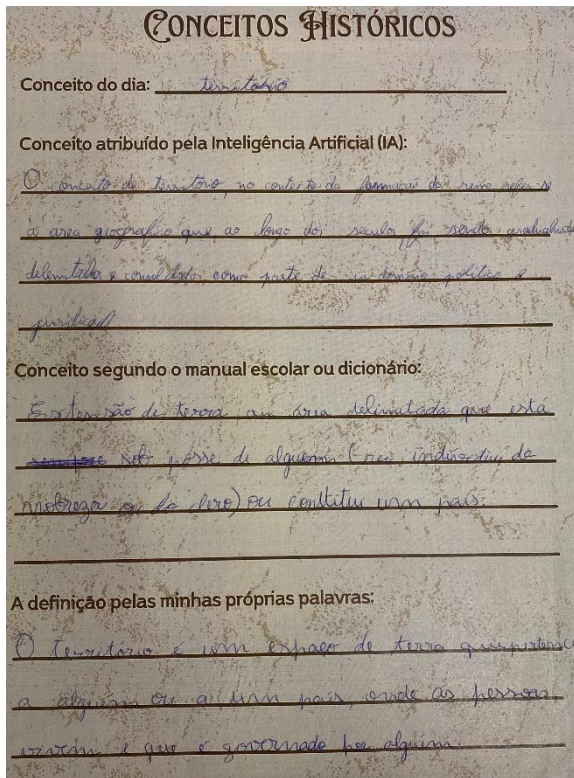 CONCEITOS HISTÓRICOS
Conceito do dia: território
Conceito atribuído pela Inteligência Artificial (IA):
O conceito de território, no contexto da formação do reino refere-se
à área geográfica que, ao longo dos séculos, foi sendo gradualmente
delimitada e consolidada como parte de um domínio político e
jurídico
Conceito segundo o manual escolar ou dicionário:
Extensão de terra ou área delimitada que está
sob posse de alguém (rei, indivíduo da
nobreza ou do clero) ou constitui um país.
A definição pelas minhas próprias palavras:
O território é um espaço de terra que pertence
a alguém ou a um país, onde as pessoas
vivem e que é governado por alguém.